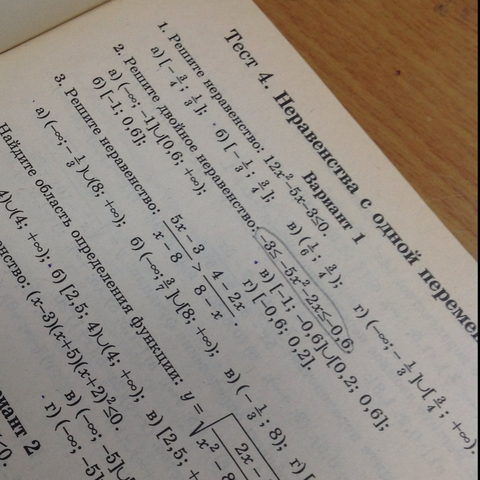 Тест 4. Неравенства с одной перемен
Вариант 1
1. Решите неравенство: 12x²–5x–3≤0.
а) [–3/4; 1/3]; б) [–1/3; 3/4]; в) (1/6; 3/4); г) (–∞; –1/3]∪[3/4; +∞).
2. Решите двойное неравенство: –3≤–5x²–2x≤–0,6
а) (–∞; –1]∪[0,6; +∞); в) [–1; –0,6]∪[0,2; 0,6];
б) [–1; 0,6]; г) [–0,6; 0,2].
3. Решите неравенство: (5x–3)/(x–8) > (4–2x)/(8–x).
а) (–∞; –1/3)∪(8; +∞); б) (–∞; 3/7]∪[8; +∞); в) (–1/3; 8); г)
Найдите область определения функции: y=√
4)∪(4; +∞); б) [2,5; 4)∪(4; +∞); в) [2,5;
нство: (x–3)(x+5)(x+2)²≤0.
в) (–∞; –5]∪
г) (–∞; –5]
риант 2
≤0.